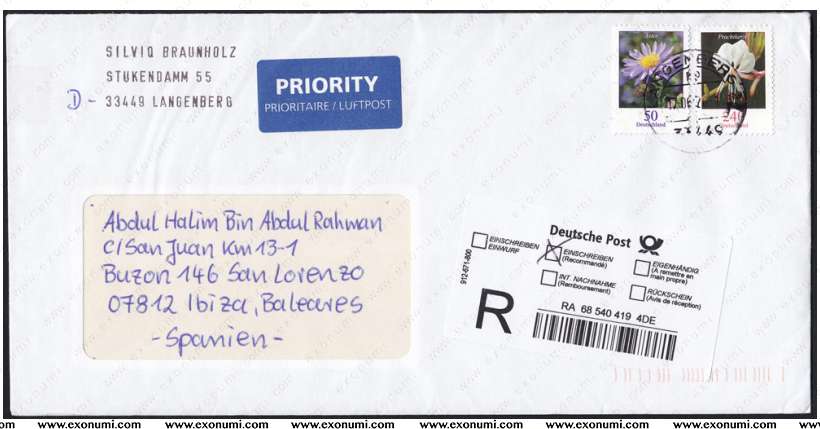 SILVIO BRAUNHOLZ
STUKENDAMM 55
D - 33449 LANGENBERG
PRIORITY
PRIORITAIRE / LUFTPOST
Aster
50
Deutschland
Prachtkerze
240
Deutschland
LANGENBERG
33449
Abdul Halim Bin Abdul Rahman
C/San Juan Km 13-1
Buzon 146 San Lorenzo
07812 Ibiza, Baleares
- Spanien -
Deutsche Post
EINSCHREIBEN
EINWURF
EINSCHREIBEN
(Recommandé)
EIGENHÄNDIG
(A remettre en
main propre)
INT. NACHNAHME
(Remboursement)
RÜCKSCHEIN
(Avis de réception)
912-671-800
R
RA 68 540 419 4DE
www.exonumi.com www.exonumi.com www.exonumi.com www.exonumi.com www.exonumi.com www.exonumi.com